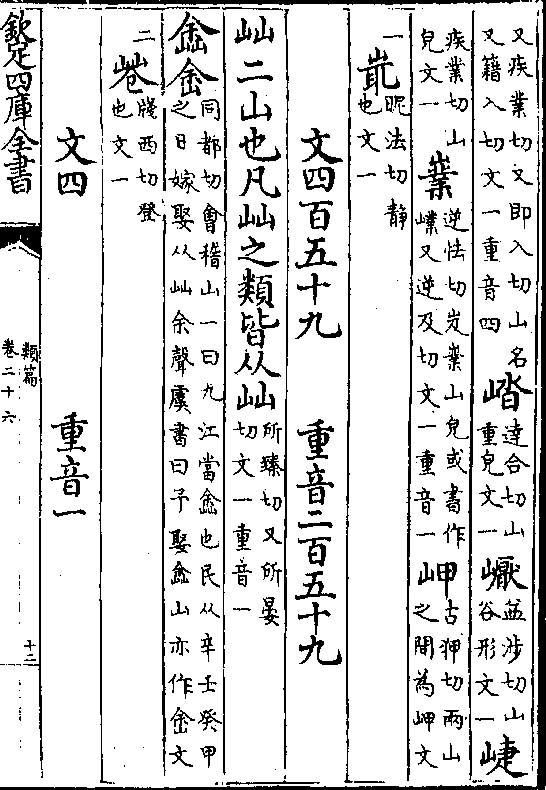 又疾業切又即入切山名
又籍入切文一重音四
㟷達合切山
重皃文一
㠎益涉切山
谷形文一
崨
疾業切山
皃文一
嶪逆怯切岌嶪山皃或書作
㠍又逆及切文一重音一
岬古狎切兩山
之間為岬文
一
㞼昵法切靜
也文一
文四百五十九 重音二百五十九
屾二山也凡屾之類皆从屾所臻切又所晏
切文一重音一
嵞㟇同都切會稽山一曰九江當嵞也民从辛壬癸甲
之日嫁娶从屾余聲虞書曰予娶嵞山亦作㟇文
二
牋西切登
也文一
文四 重音一
欽定四庫全書
類篇
卷二十六
十二